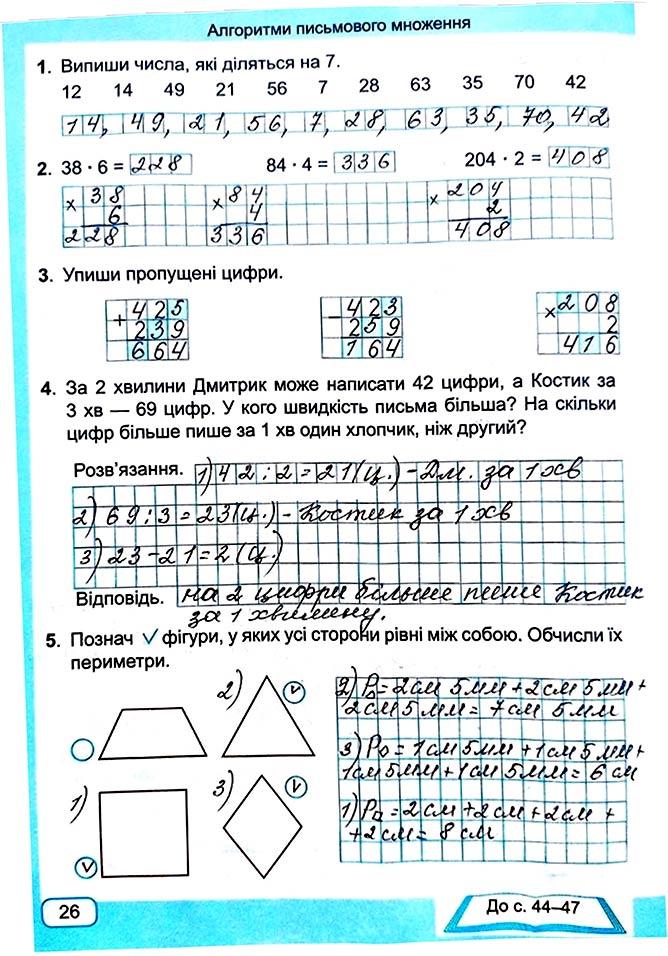 Алгоритми письмового множення
1. Випиши числа, які діляться на 7.
12 14 49 21 56 7 28 63 35 70 42
14, 49, 21, 56, 7, 28, 63, 35, 70, 42
2. 38 · 6 = 228 84 · 4 = 336 204 · 2 = 408
× 38 × 84 × 204
6 4 2
228 336 408
3. Упиши пропущені цифри.
+ 425 − 423 × 208
239 259 2
664 164 416
4. За 2 хвилини Дмитрик може написати 42 цифри, а Костик за
3 хв — 69 цифр. У кого швидкість письма більша? На скільки
цифр більше пише за 1 хв один хлопчик, ніж другий?
Розв'язання. 1) 42 : 2 = 21 (ц.) - Дм. за 1 хв
2) 69 : 3 = 23 (ц.) - Костик за 1 хв
3) 23 - 21 = 2 (ц.)
Відповідь. на 2 цифри більше пише Костик
за 1 хвилину.
5. Познач √ фігури, у яких усі сторони рівні між собою. Обчисли їх
периметри.
2) √
3) √
1) √
2) P△ = 2см 5мм + 2см 5мм +
2см 5мм = 7см 5мм
3) P◇ = 1см 5мм + 1см 5мм +
1см 5мм + 1см 5мм = 6см
1) P□ = 2см + 2см + 2см +
+ 2см = 8см
26
До с. 44–47